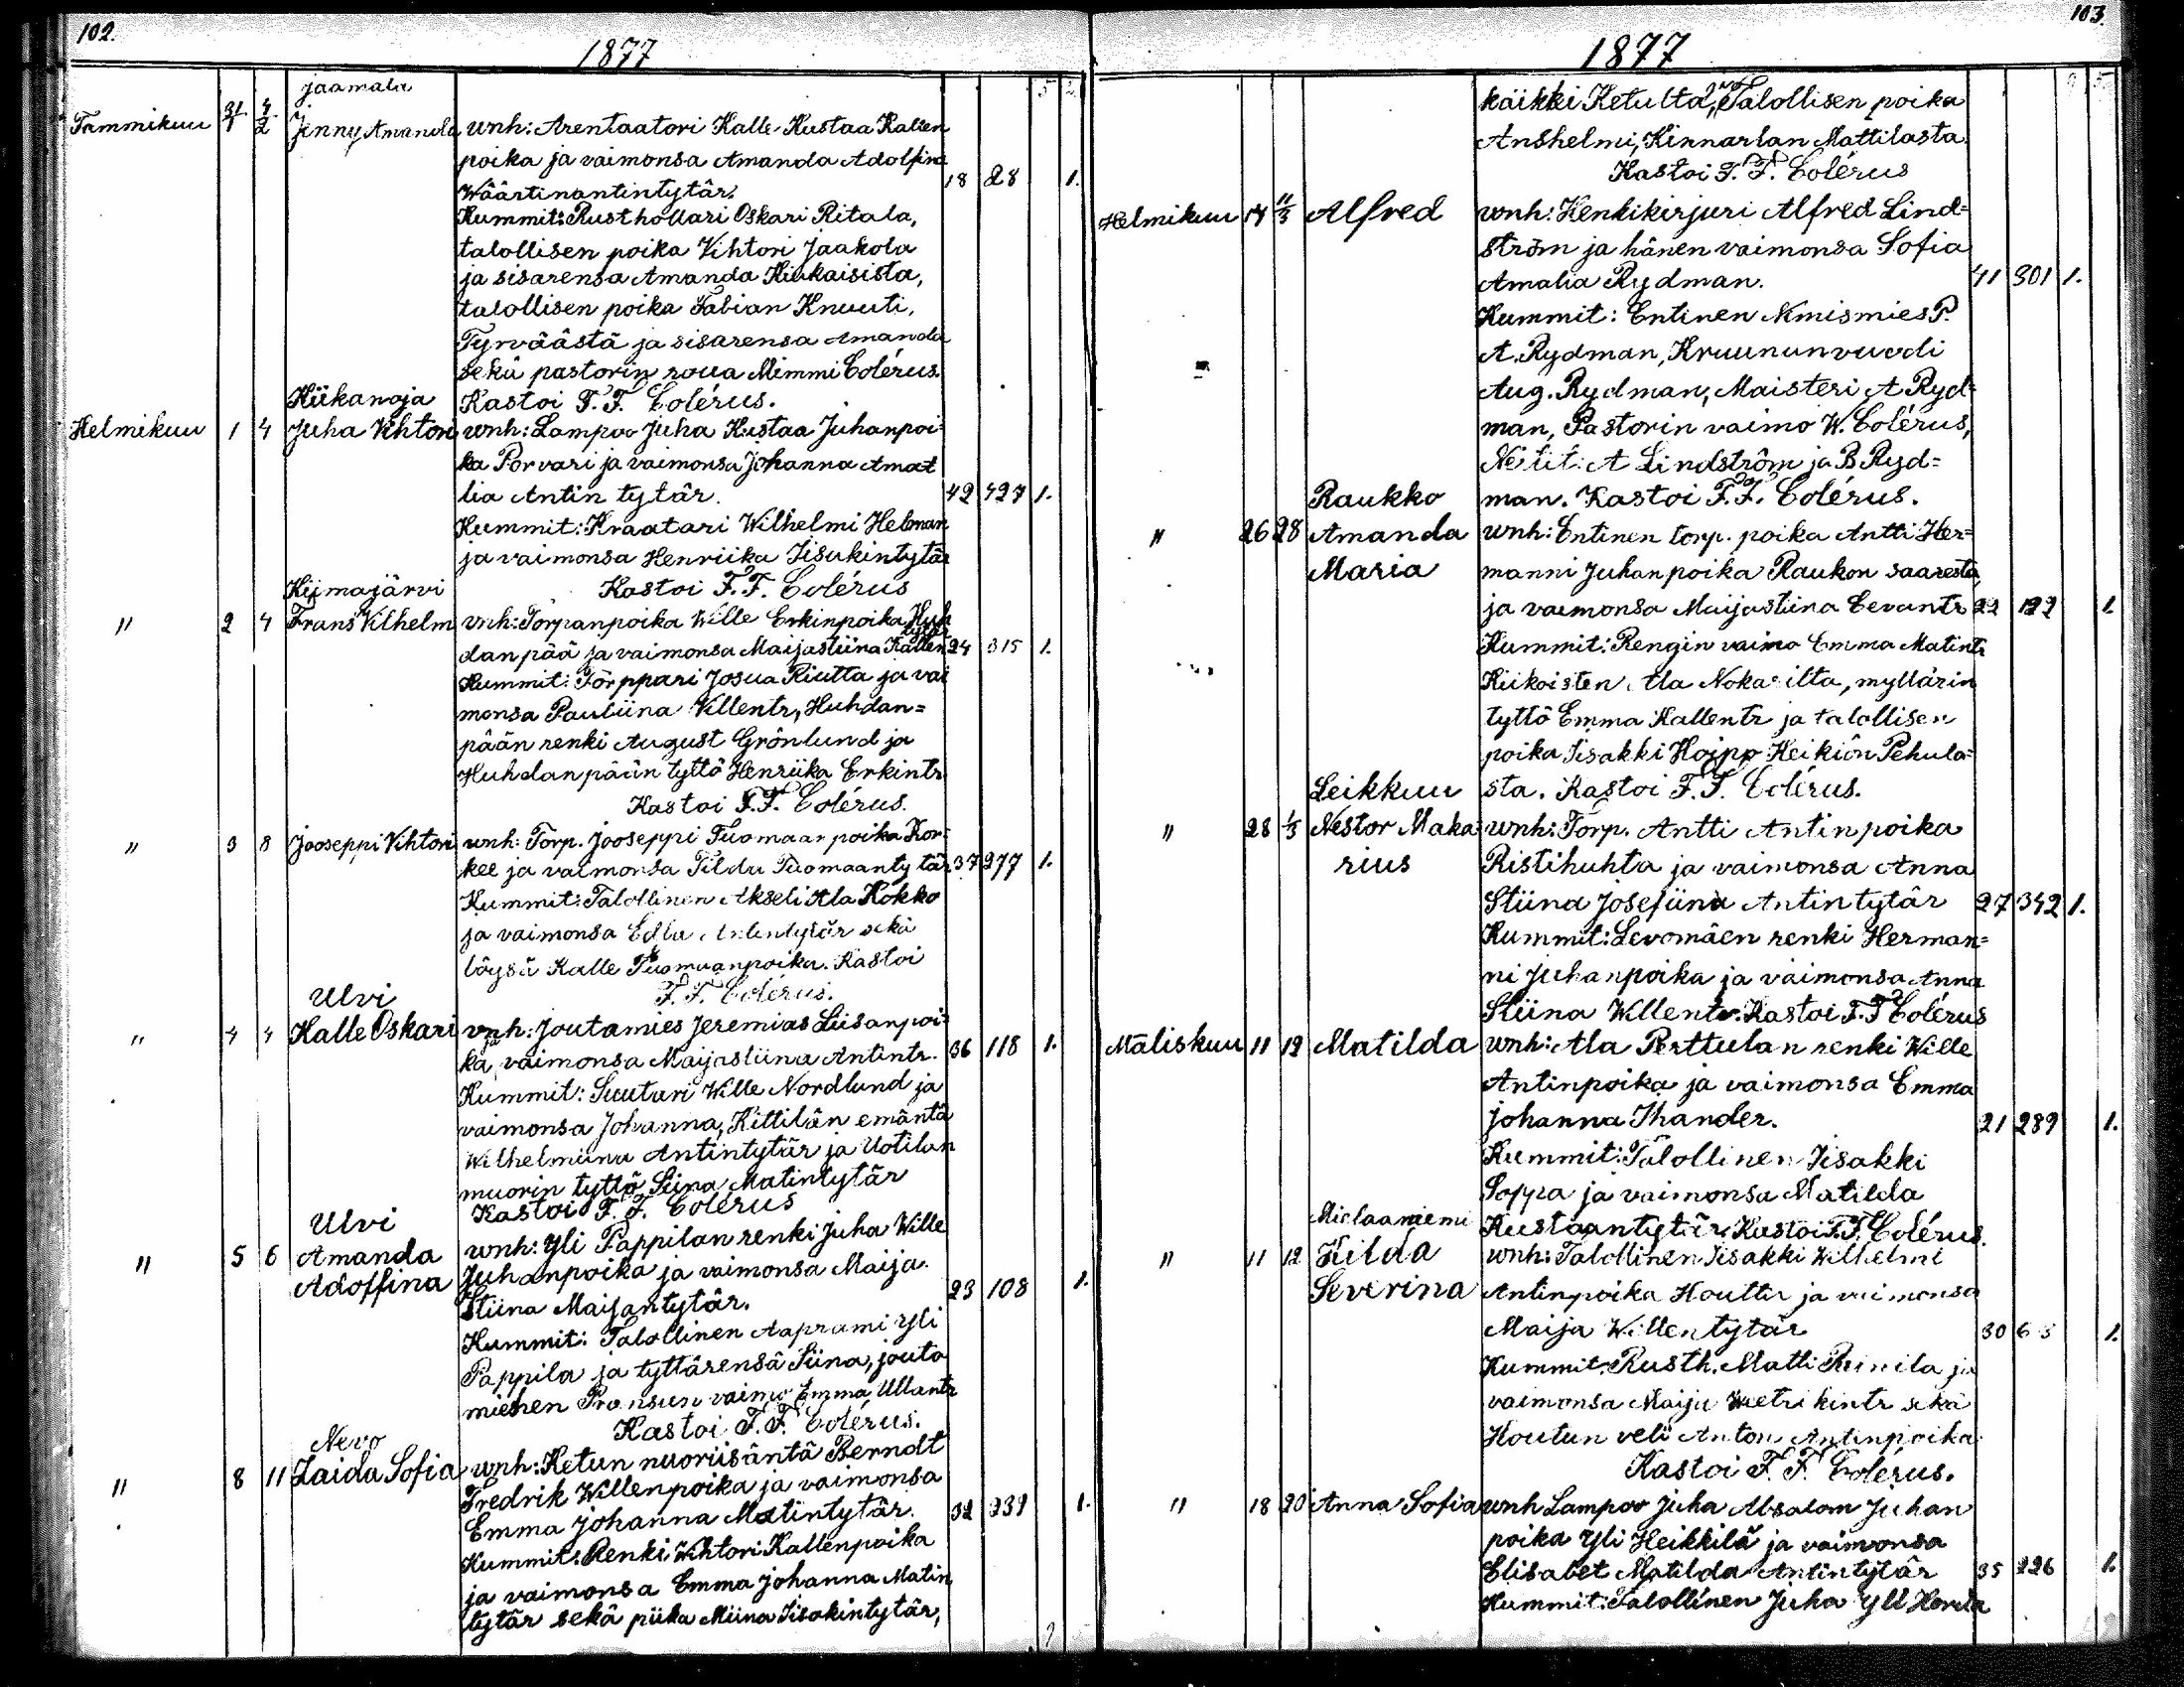 102.
1877
jaamala
Tammikuu 31/1 4/2 Jenny Amanda vnh: Arentaatori Kalle Kustaa Kallen
poika ja vaimonsa Amanda Adolfina
Wäärtinantintytär. 18 28 1.
Kummit: Rusthollari Oskari Ritala,
talollisen poika Vihtori Jaakola
ja sisarensa Amanda Kiikaisista,
talollisen poika Fabian Knuuti,
Tyrväästä ja sisarensa Amanda
sekä pastorin roua Mimmi Colérus.
Kiikanoja Kastoi F. F. Colérus.
Helmikuu 1 4 Juha Vihtori vnh: Lampuo Juha Kustaa Juhanpoi-
ka Porvari ja vaimonsa Johanna Ama
lia Antin tytär. 42 427 1.
Kummit: Kraatari Wilhelmi Helman
ja vaimonsa Henriika Iisakintytär
Kiimajärvi Kastoi F. F. Colérus
" 2 4 Frans Vilhelm vnh: Torpanpoika Wille Erkinpoika Huh
tytär
dan pää ja vaimonsa Maijastiina Kallen 24 315 1.
Kummit: Torppari Josua Riutta ja vai
monsa Pauliina Villentr, Huhdan=
pään renki August Grönlund ja
Huhdanpään tyttö Henriika Erkintr
Kastoi F. F. Colérus.
" 3 8 Jooseppi Vihtori vnh: Torp. Jooseppi Tuomaan poika Kor-
kee ja vaimonsa Tilda Tuomaantytär 37 277 1.
Kummit: Talollinen Akseli Ala Kokko
ja vaimonsa Edla Antintytär sekä
löysä Kalle Tuomaanpoika. Kastoi
F. F. Colérus.
Ulvi
" 4 4 Kalle Oskari vnh: Joutamies Jeremias Liisanpoi-
ja
ka, vaimonsa Maijastiina Antintr. 36 118 1.
Kummit: Suutari Wille Nordlund ja
vaimonsa Johanna, Kittilän emäntä
Wilhelmiina Antintytär ja Uotilan
muorin tyttö Siina Matintytär
Kastoi F. F. Colérus
Ulvi
" 5 6 Amanda vnh: Yli Pappilan renki Juha Wille
Adolfina Juhanpoika ja vaimonsa Maija
Stiina Maijantytär. 23 108 1.
Kummit: Talollinen Aaprami Yli
Pappila ja tyttärensä Siina, jouto
miehen Pransun vaimo Emma Ullantr
Kastoi F. F. Colérus.
Nevo
" 8 11 Laida Sofia vnh: Ketun nuoriisäntä Berndt
Fredrik Willenpoika ja vaimonsa
Emma Johanna Matintytär. 32 231 1.
Kummit: Renki Vihtori Kallenpoika
ja vaimonsa Emma Johanna Matin
tytär sekä piika Miina Iisakintytär,
103.
1877
kaikki Ketulta, Talollisen poika
Anshelmi, Kinnarlan Mattilasta.
Kastoi F. F. Colérus
Helmikuu 14 11/3 Alfred vnh: Henkikirjuri Alfred Lind=
ström ja hänen vaimonsa Sofia
Amalia Rydman. 41 301 1.
Kummit: Entinen Nimismies P.
A. Rydman, Kruununvuodi
Aug. Rydman, Maisteri A Ryd=
man, Pastorin vaimo W. Colérus,
Neitit: A Lindström ja B Ryd=
Raukko man. Kastoi F. F. Colérus.
" 26 28 Amanda vnh: Entinen torp. poika Antti Her=
Maria manni Juhanpoika Raukon saaresta
ja vaimonsa Maijastiina Eevantr 22 122 1.
Kummit: Rengin vaimo Emma Matintr
Kiikoisten Ala Nokasilta, myllärin
tyttö Emma Kallentr ja talollisen
poika Iisakki Hoipo Heikiön Pehula=
Leikkuu sta. Kastoi F. F. Colérus.
" 28 1/3 Nestor Maka vnh: Torp. Antti Antinpoika
rius Ristihuhta ja vaimonsa Anna
Stiina Josefiina Antintytär 27 342 1.
Kummit: Levomäen renki Herman=
ni Juhanpoika ja vaimonsa Anna
Stiina Willentr. Kastoi F. F Colérus
Maliskuu 11 12 Matilda vnh: Ala Perttulan renki Wille
Antinpoika ja vaimonsa Emma
Johanna Thander. 21 289 1.
Kummit: Talollinen Iisakki
Soppa ja vaimonsa Matilda
Mielaaniemi Kustaantytär Kastoi F. F. Colérus.
" 11 12 Hilda vnh: Talollinen Iisakki Wilhelmi
Severina Antinpoika Houttu ja vaimonsa
Maija Willentytär 30 1.
Kummit: Rusth. Matti Reinila ja
vaimonsa Maija Wietrikintr sekä
Houtun veli Anton Antinpoika
Kastoi F. F. Colérus.
" 18 20 Anna Sofia vnh Lampuo Juha Absalom Juhan
poika Yli Heikkilä ja vaimonsa
Elisabet Matilda Antintytär 35 226 1.
Kummit: Talollinen Juha Yli